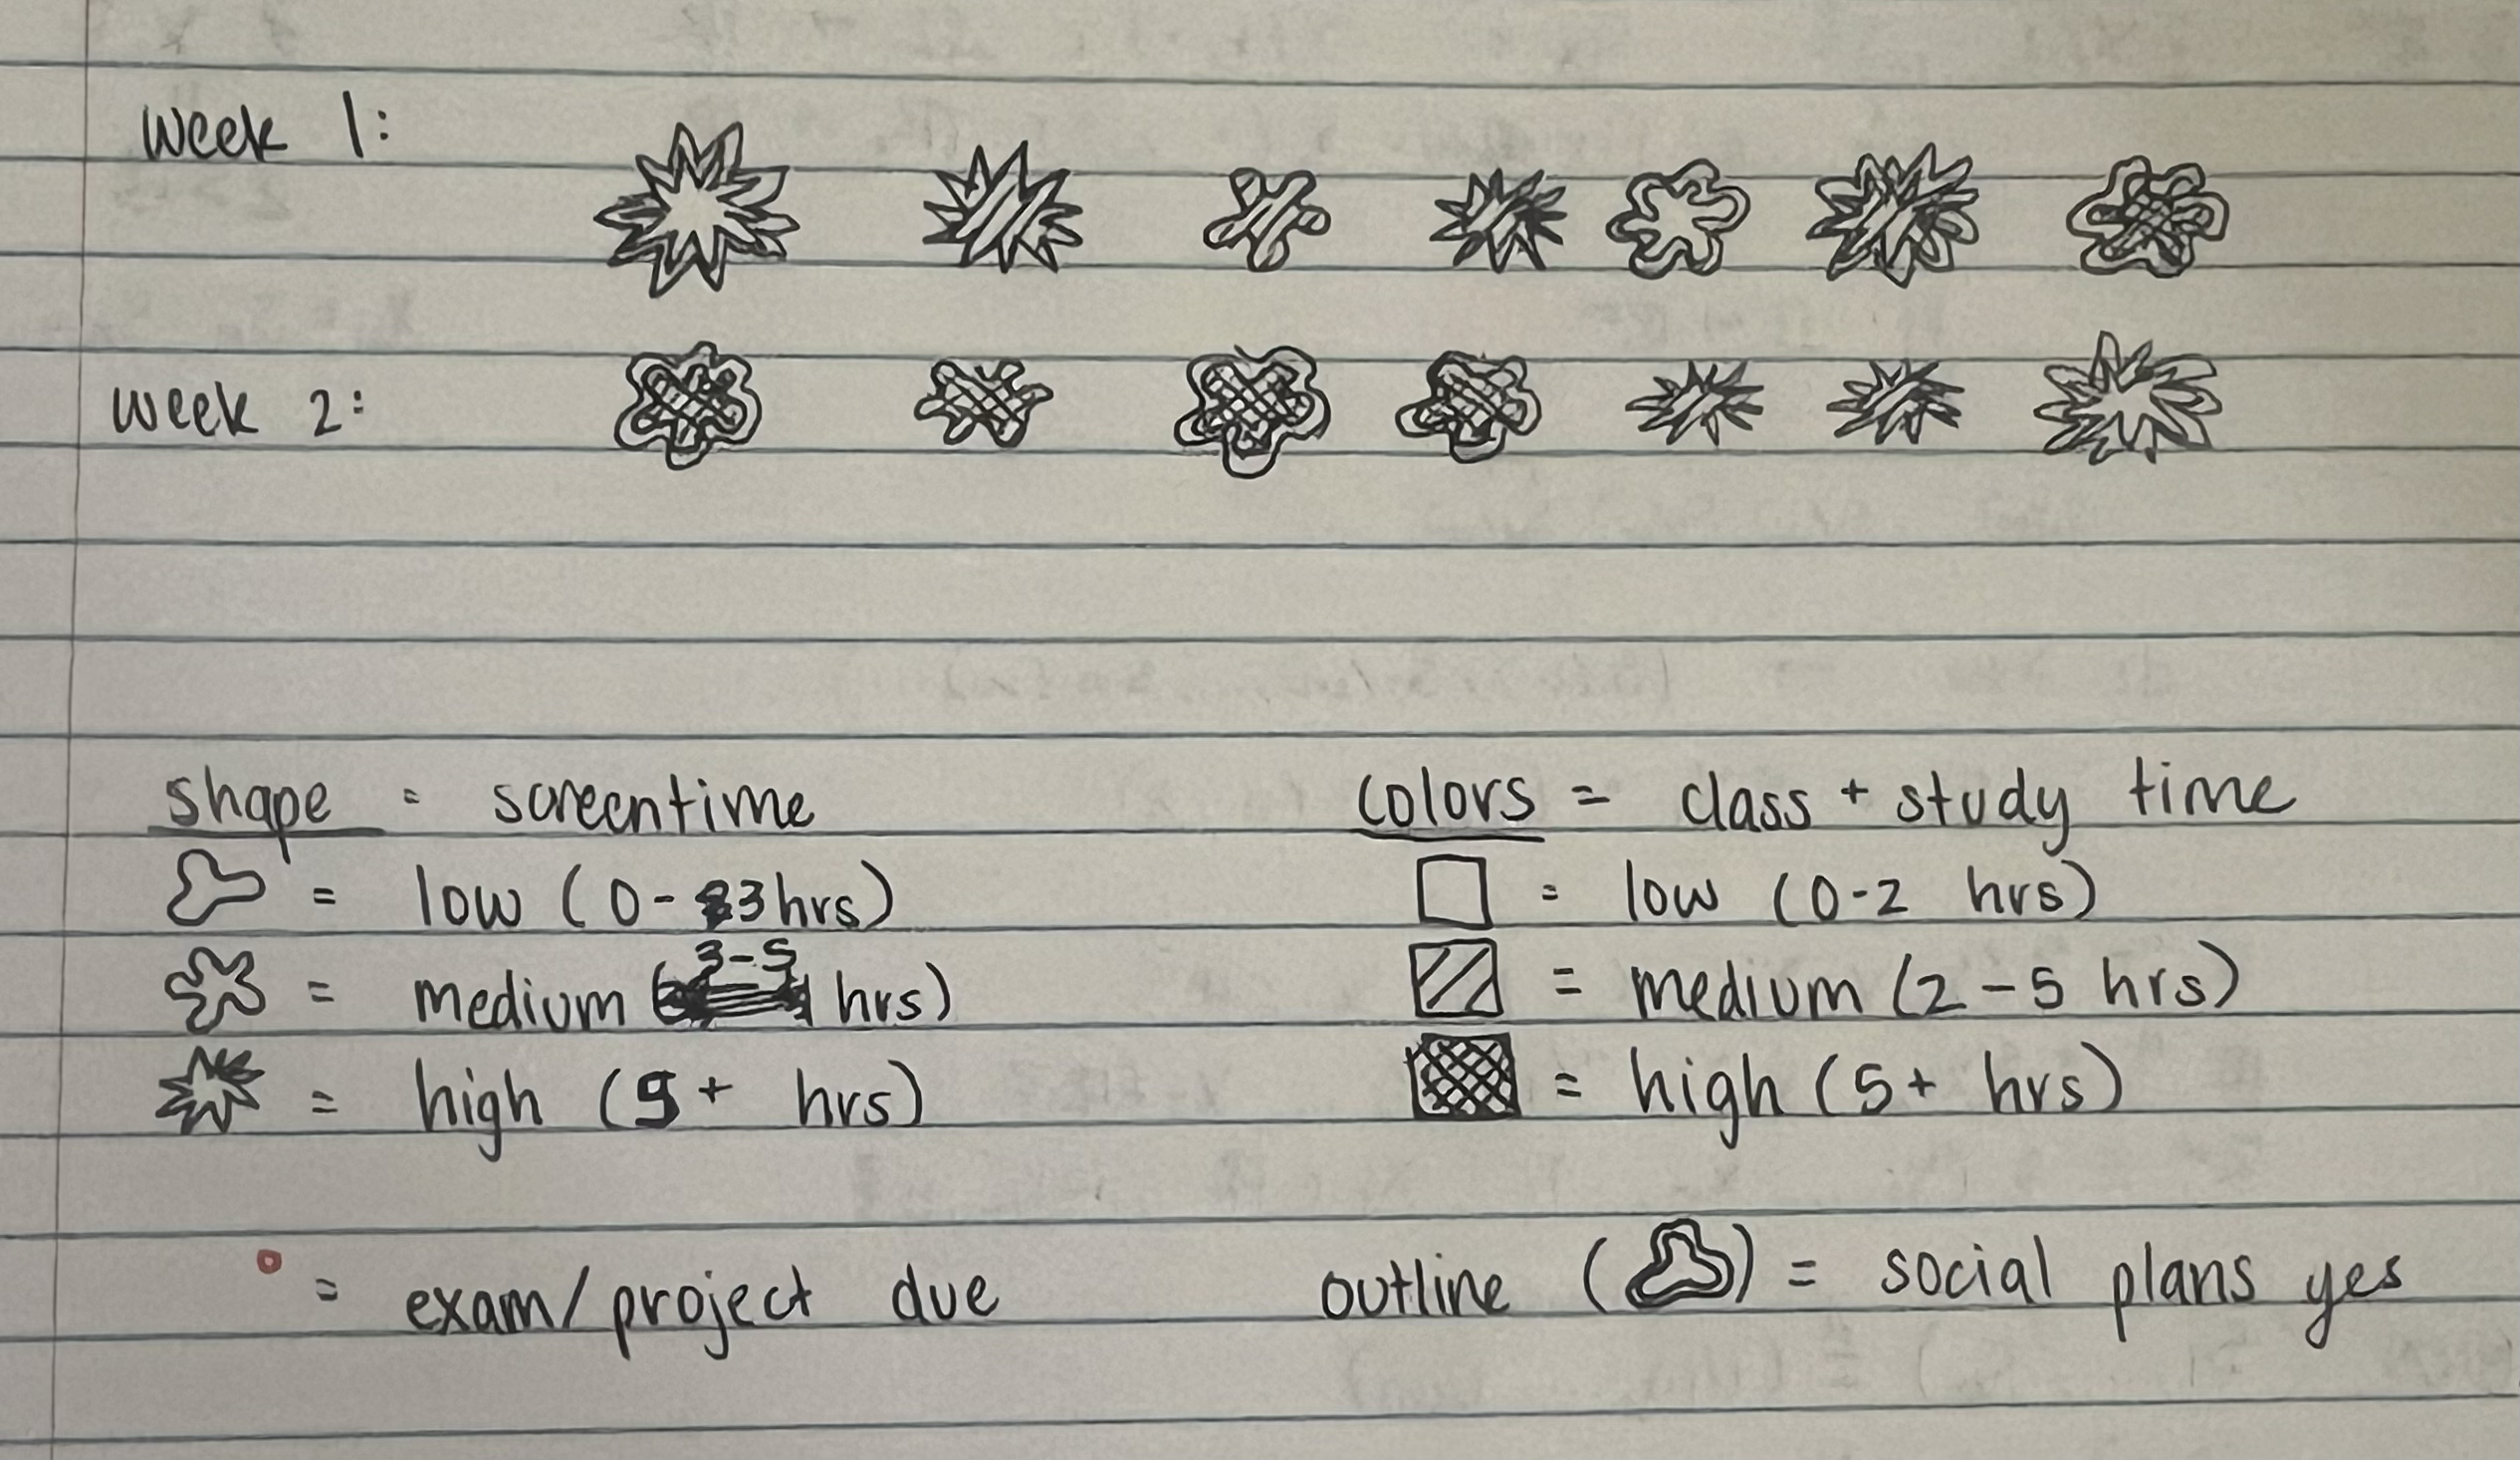 week 1:
week 2:
shape = screentime
= low (0-3hrs)
= medium (3-5 hrs)
= high (5+ hrs)
= exam/project due
colors = class + study time
= low (0-2 hrs)
= medium (2-5 hrs)
= high (5+ hrs)
outline ( ) = social plans yes